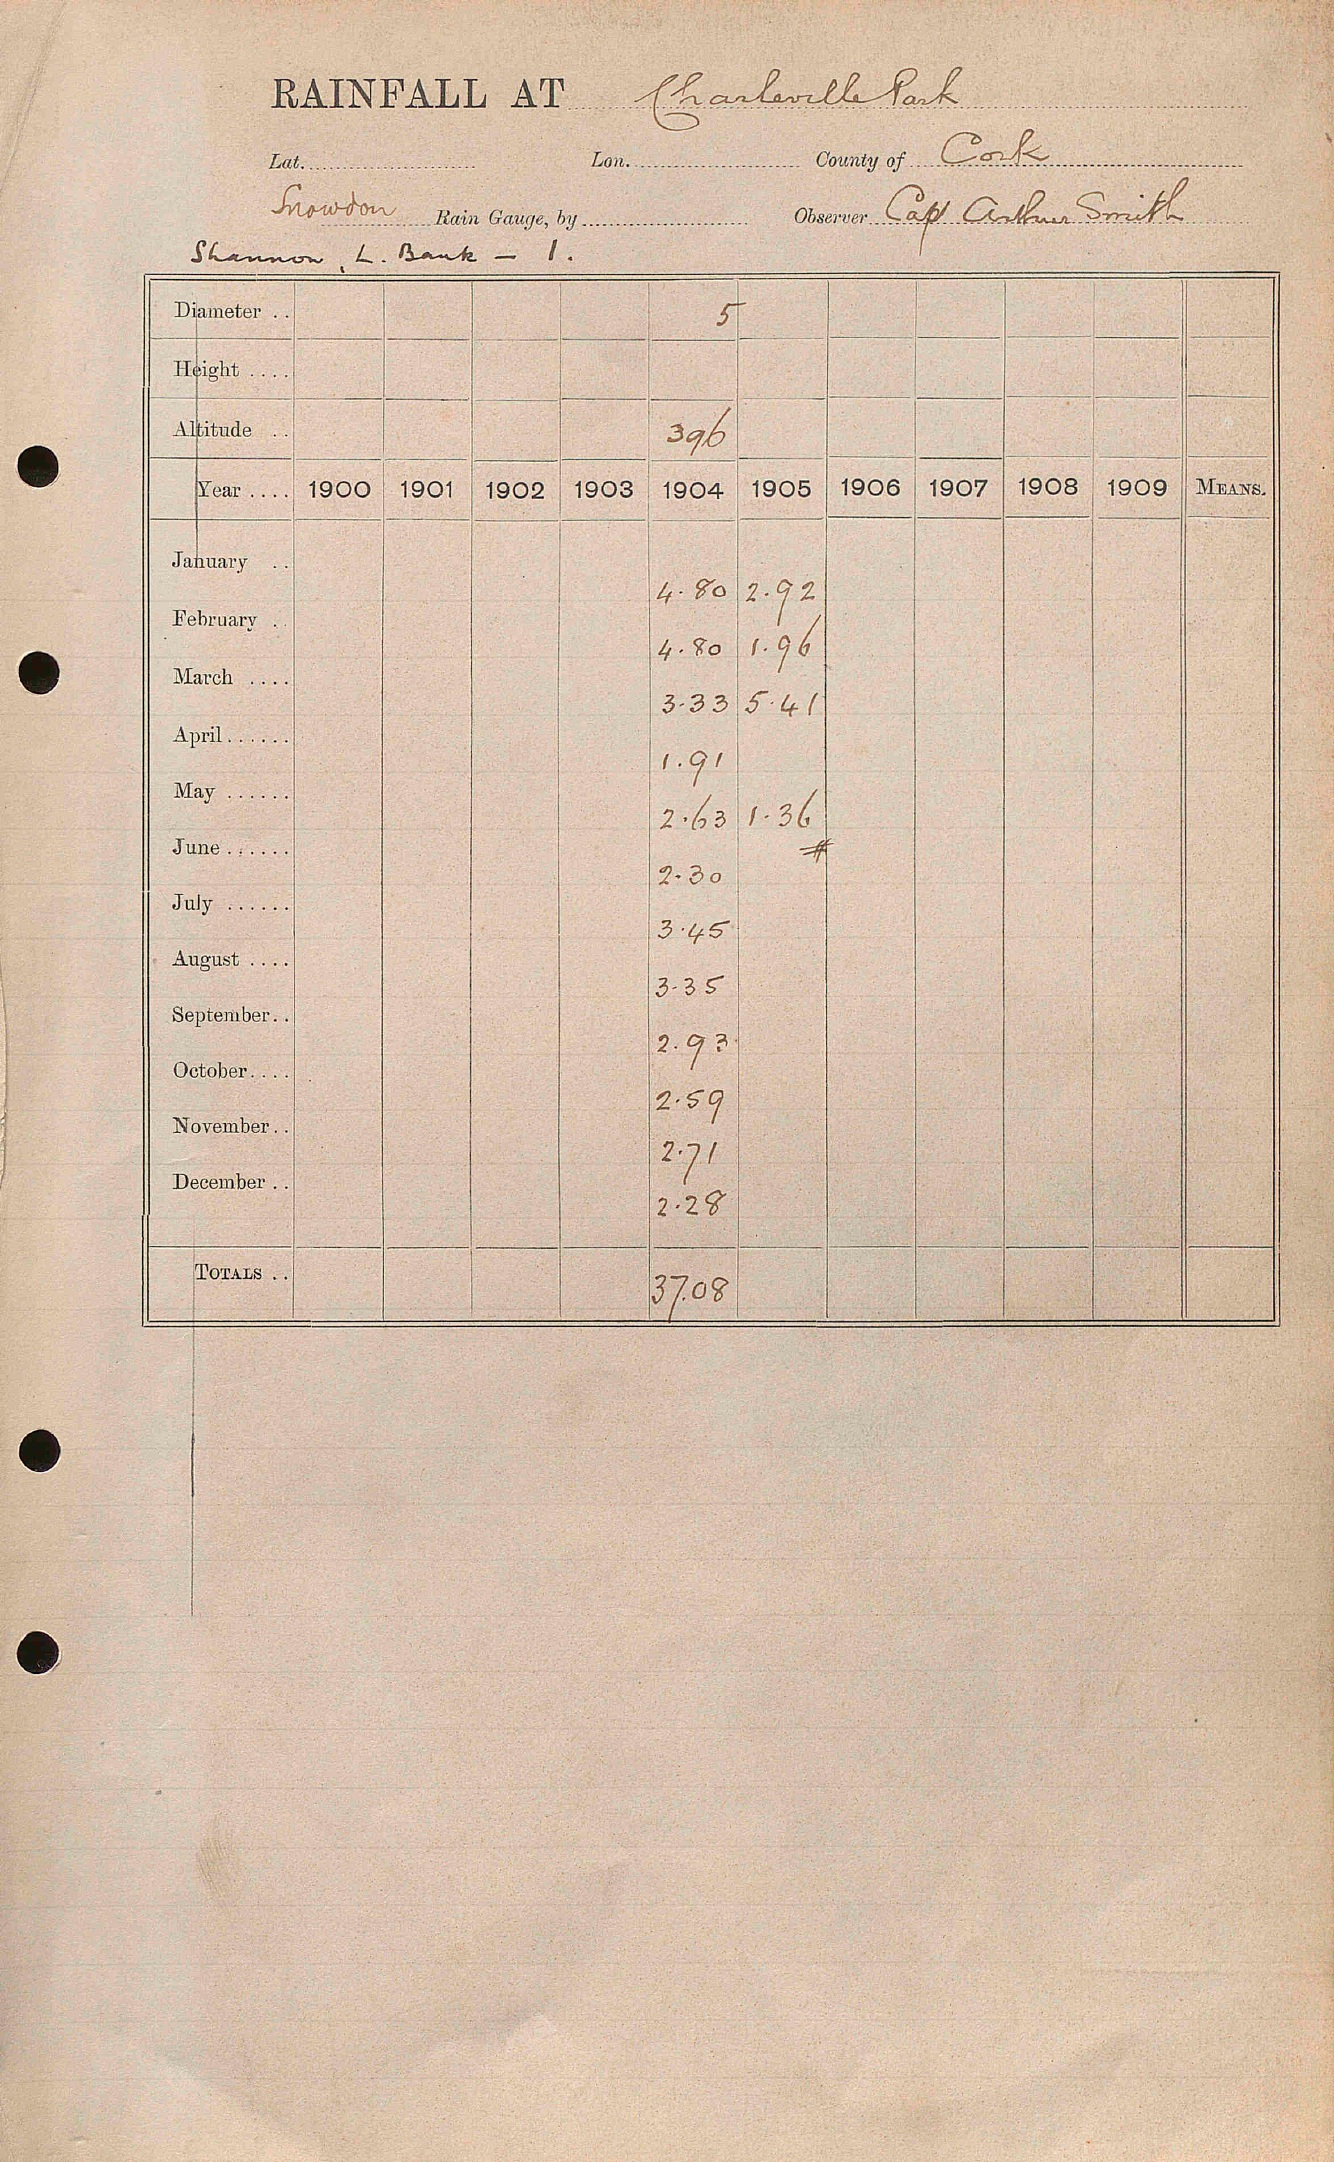 RAINFALL AT Charleville Park
Lat. Lon. County of Cork
Snowdon Rain Gauge, by Observer Cap Arthur Smith
Shannon, L. Bank – 1.
Diameter .. 5
Height ....
Altitude .. 396
Year .... 1900 1901 1902 1903 1904 1905 1906 1907 1908 1909 MEANS.
January .. 4.80 2.92
February .. 4.80 1.96
March .... 3.33 5.41
April...... 1.91
May ...... 2.63 1.36
June ...... 2.30 #
July ...... 3.45
August .... 3.35
September.. 2.93
October.... 2.59
November.. 2.71
December .. 2.28
TOTALS .. 37.08